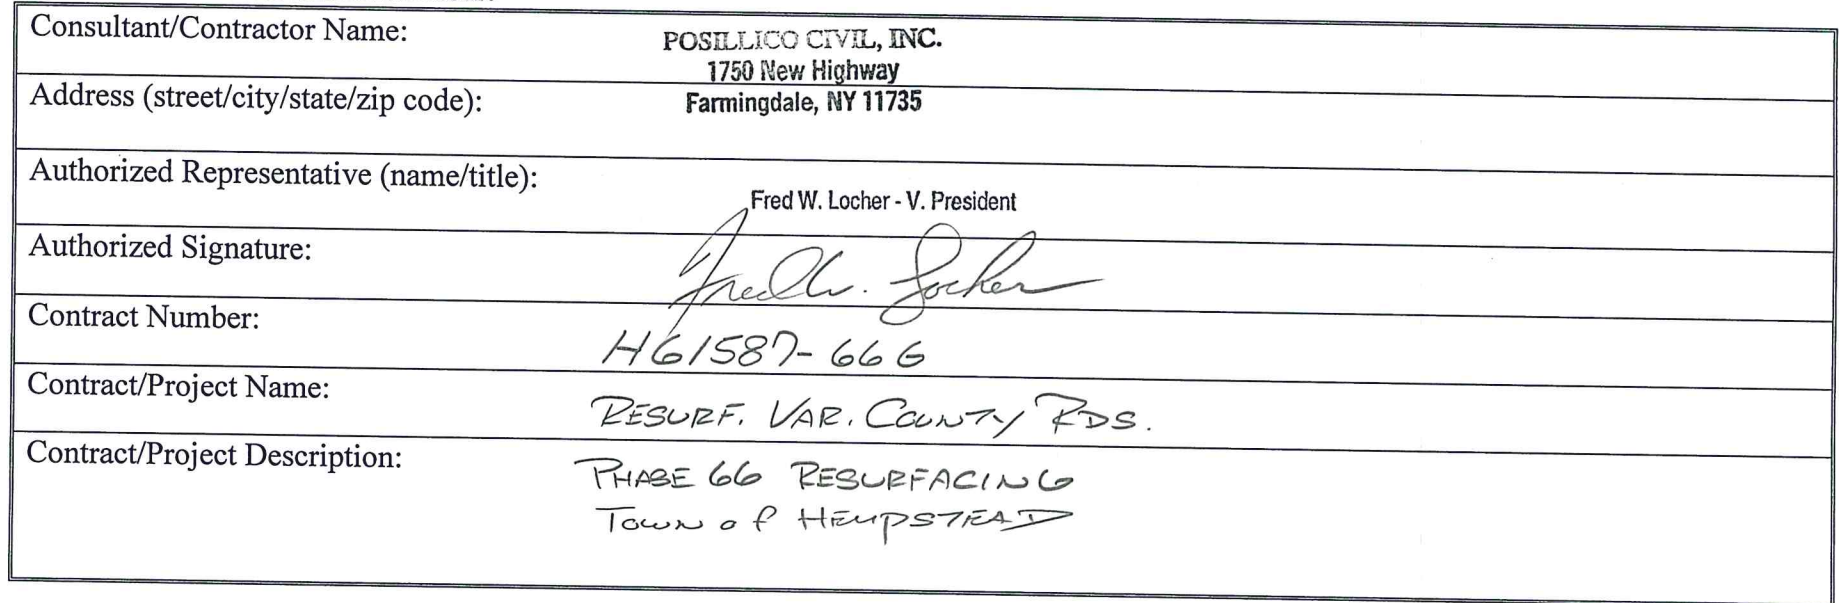 Consultant/Contractor Name:
POSILLICO CIVIL, INC.
1750 New Highway
Address (street/city/state/zip code):
Farmingdale, NY 11735
Authorized Representative (name/title):
Fred W. Locher - V. President
Authorized Signature:
Fred W. Locher
Contract Number:
H61587-66G
Contract/Project Name:
RESURF. VAR. COUNTY RDS.
Contract/Project Description:
PHASE 66 RESURFACING
TOWN of HEMPSTEAD